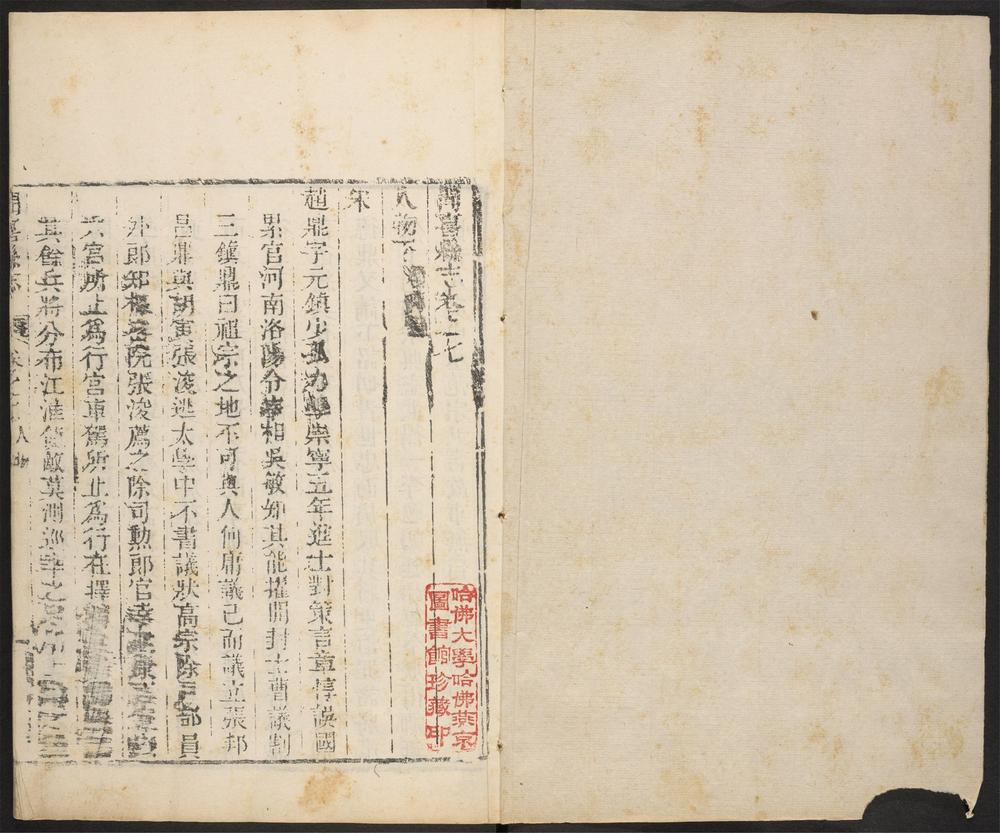 聞喜縣志卷之七
人物下
宋
趙鼎字元鎮少孤力學崇寧五年進士對策言章惇誤國
累官河南洛陽令宰相吳敏知其能擢開封士曹議割
三鎮鼎曰祖宗之地不可與人何庸議已而議立張邦
昌鼎與胡寅張浚逃太學中不書議狀高宗除部員
外郎知樞密院張浚薦之除司勲郎官幸建康
六宮所止為行宮車駕所止為行在擇
其餘兵將分布江淮使敵莫測巡幸之
聞喜縣志 卷之七 人物
哈佛大學哈佛燕京
圖書館珍藏印